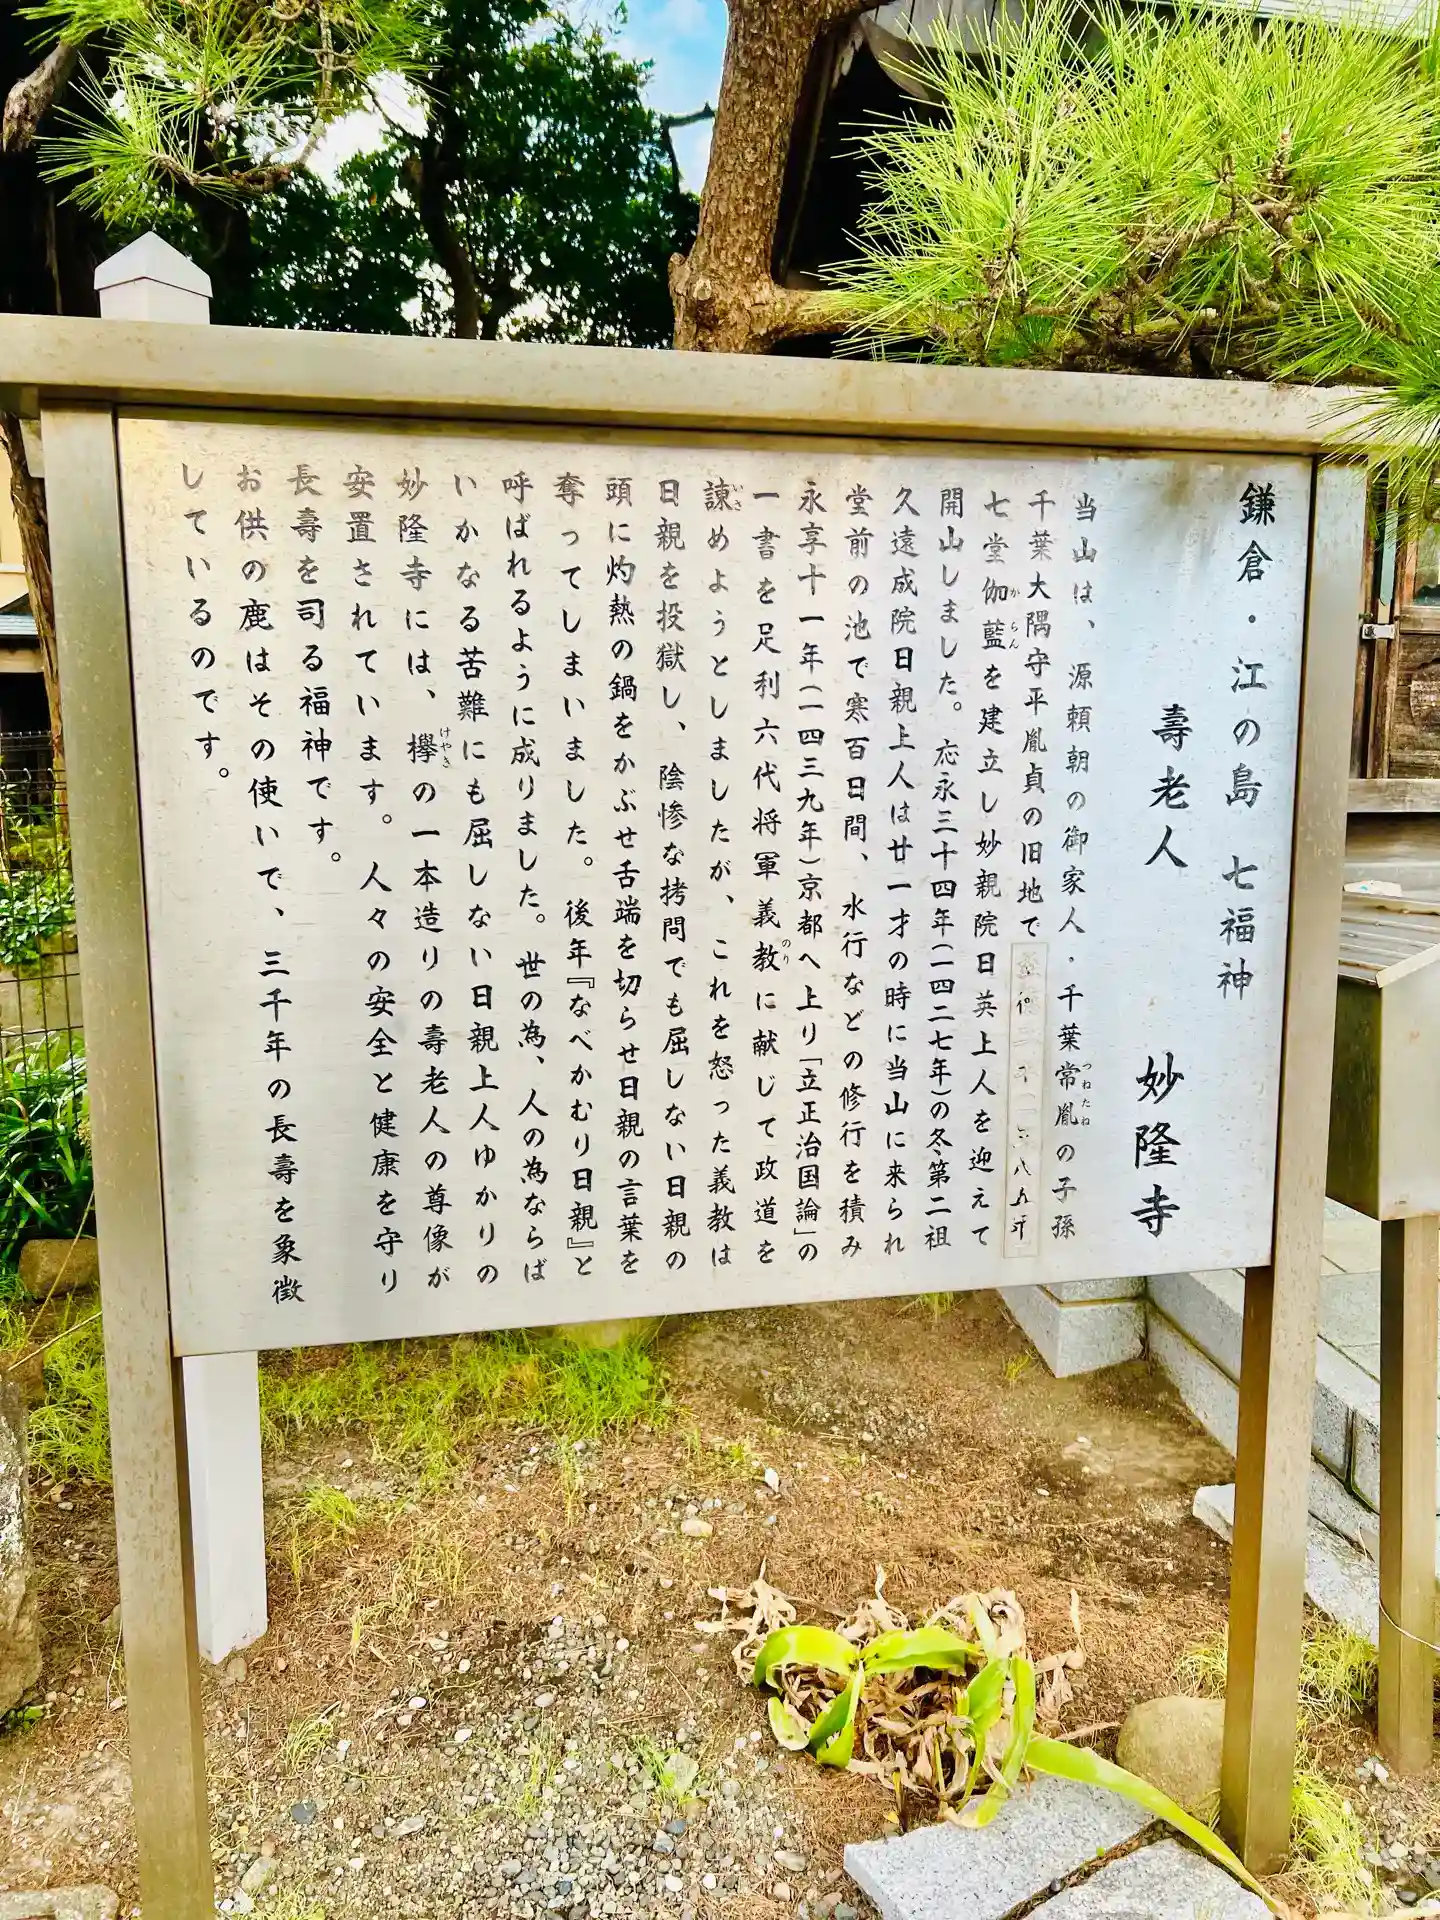 鎌倉・江の島 七福神
壽老人 妙隆寺
当山は、源頼朝の御家人・千葉常胤の子孫
つねたね
千葉大隅守平胤貞の旧地で
七堂伽藍を建立し妙親院日英上人を迎えて
からん
開山しました。応永三十四年(一四二七年)の冬、第二祖
久遠成院日親上人は廿一才の時に当山に来られ
堂前の池で寒百日間、水行などの修行を積み
永享十一年(一四三九年)京都へ上り「立正治国論」の
一書を足利六代将軍義教に献じて政道を
のり
諌めようとしましたが、これを怒った義教は
いさ
日親を投獄し、陰惨な拷問でも屈しない日親の
頭に灼熱の鍋をかぶせ舌端を切らせ日親の言葉を
奪ってしまいました。後年『なべかむり日親』と
呼ばれるように成りました。世の為、人の為ならば
いかなる苦難にも屈しない日親上人ゆかりの
妙隆寺には、欅の一本造りの壽老人の尊像が
けやき
安置されています。人々の安全と健康を守り
長壽を司る福神です。
お供の鹿はその使いで、三千年の長壽を象徴
しているのです。